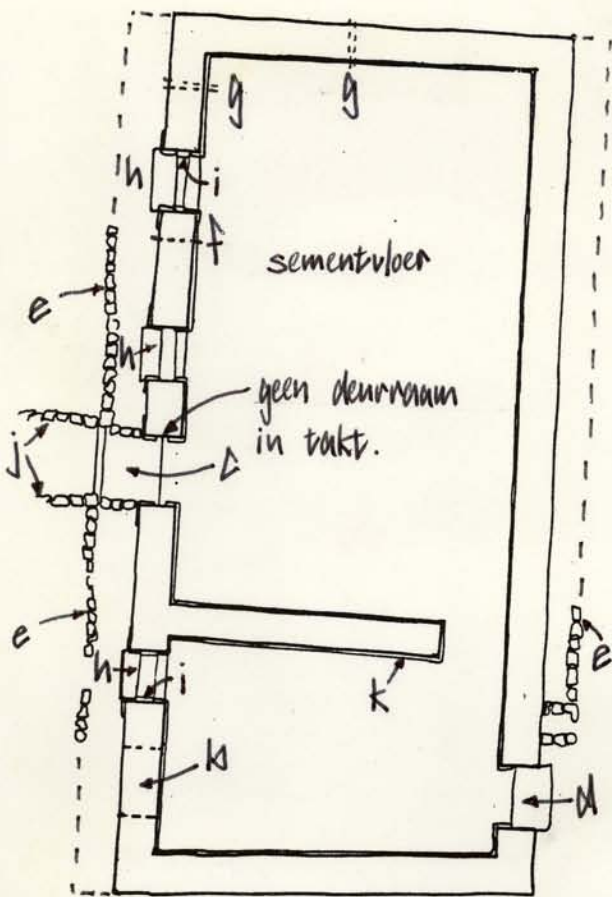 g
g
h
i
f
sementvloer
e
h
geen deurraam
in takt.
j
c
e
e
h
i
k
b
d